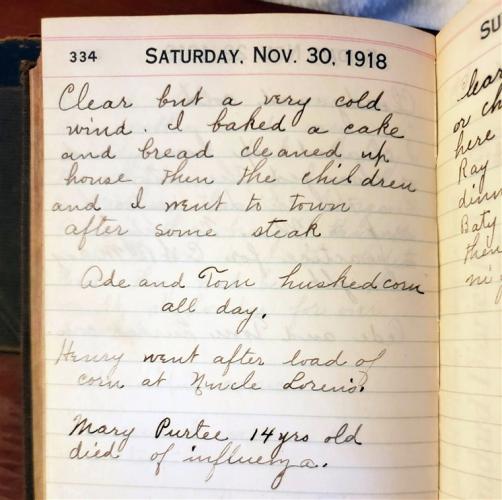 334 SATURDAY, NOV. 30, 1918
Clear but a very cold
wind. I baked a cake
and bread cleaned up
house then the children
and I went to town
after some steak
Ade and Tom husked corn
all day.
Henry went after load of
corn at Uncle Loren's.
Mary Purtee 14 yrs old
died of influenza.
SU
or ch
here
Ray
dinn
Baty
then